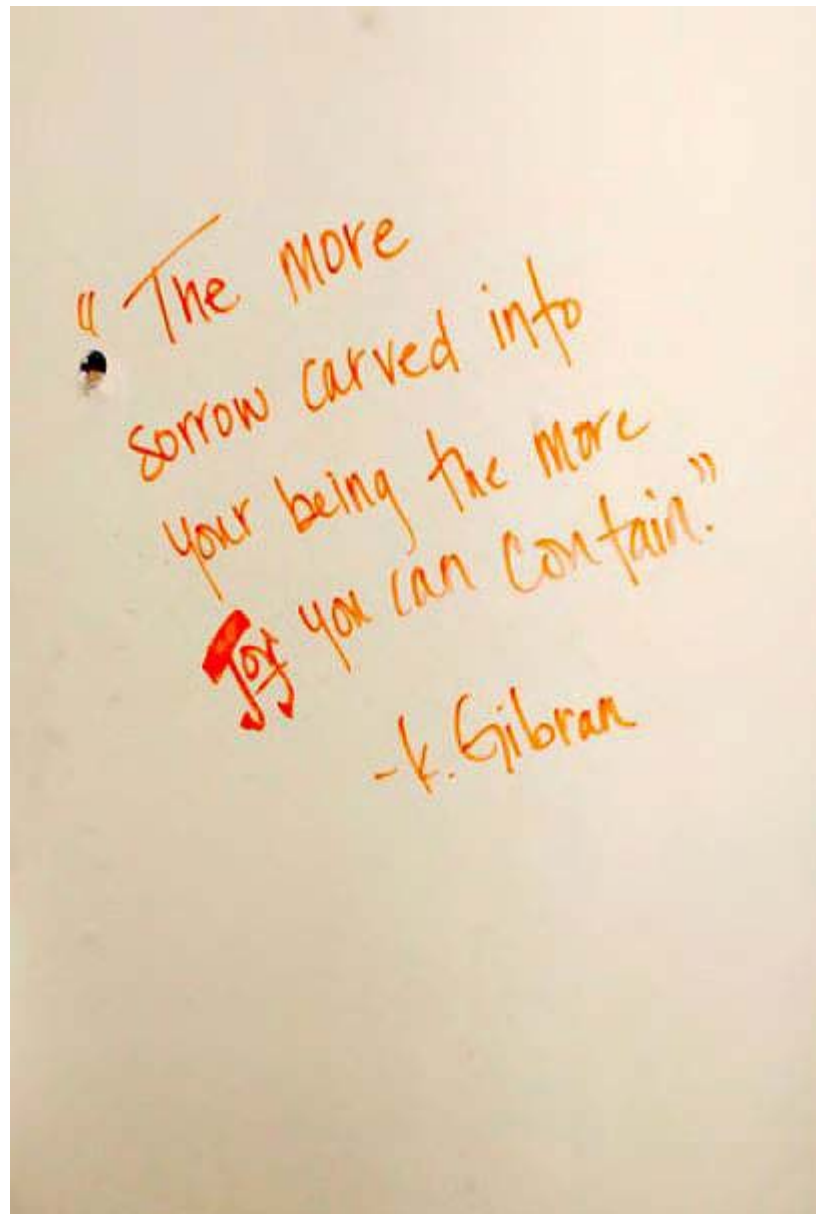 "The more
sorrow carved into
your being the more
Joy you can contain."
-k. Gibran